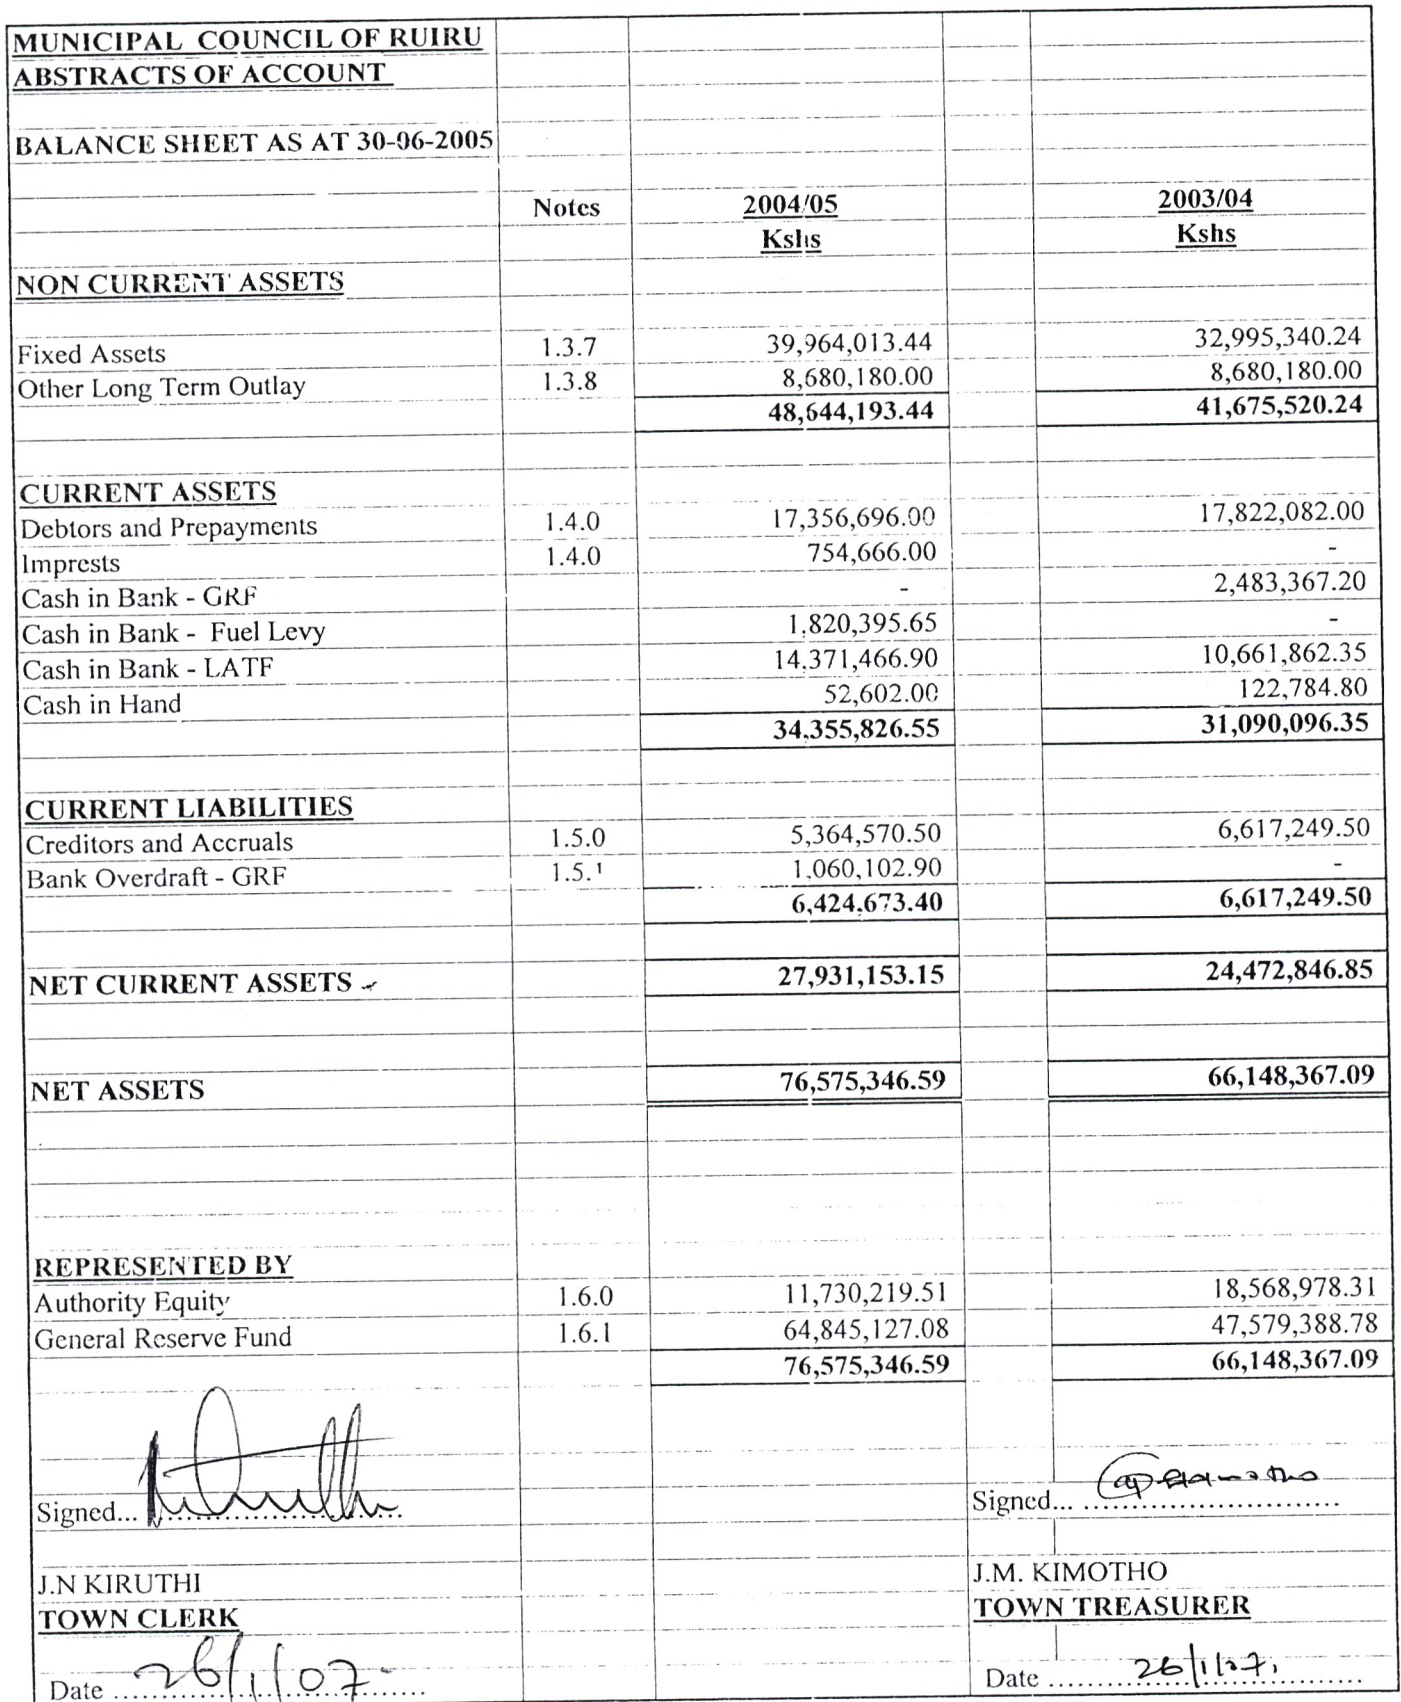 MUNICIPAL COUNCIL OF RUIRU
ABSTRACTS OF ACCOUNT
BALANCE SHEET AS AT 30-06-2005
Notes 2004/05 2003/04
Kshs Kshs
NON CURRENT ASSETS
Fixed Assets 1.3.7 39,964,013.44 32,995,340.24
Other Long Term Outlay 1.3.8 8,680,180.00 8,680,180.00
48,644,193.44 41,675,520.24
CURRENT ASSETS
Debtors and Prepayments 1.4.0 17,356,696.00 17,822,082.00
Imprests 1.4.0 754,666.00 -
Cash in Bank - GRF - 2,483,367.20
Cash in Bank - Fuel Levy 1,820,395.65 -
Cash in Bank - LATF 14,371,466.90 10,661,862.35
Cash in Hand 52,602.00 122,784.80
34,355,826.55 31,090,096.35
CURRENT LIABILITIES
Creditors and Accruals 1.5.0 5,364,570.50 6,617,249.50
Bank Overdraft - GRF 1.5.1 1,060,102.90 -
6,424,673.40 6,617,249.50
NET CURRENT ASSETS 27,931,153.15 24,472,846.85
NET ASSETS 76,575,346.59 66,148,367.09
REPRESENTED BY
Authority Equity 1.6.0 11,730,219.51 18,568,978.31
General Reserve Fund 1.6.1 64,845,127.08 47,579,388.78
76,575,346.59 66,148,367.09
Signed... .................... Signed... ..........................
J.N KIRUTHI J.M. KIMOTHO
TOWN CLERK TOWN TREASURER
Date 26/1/07 Date 26/1/07